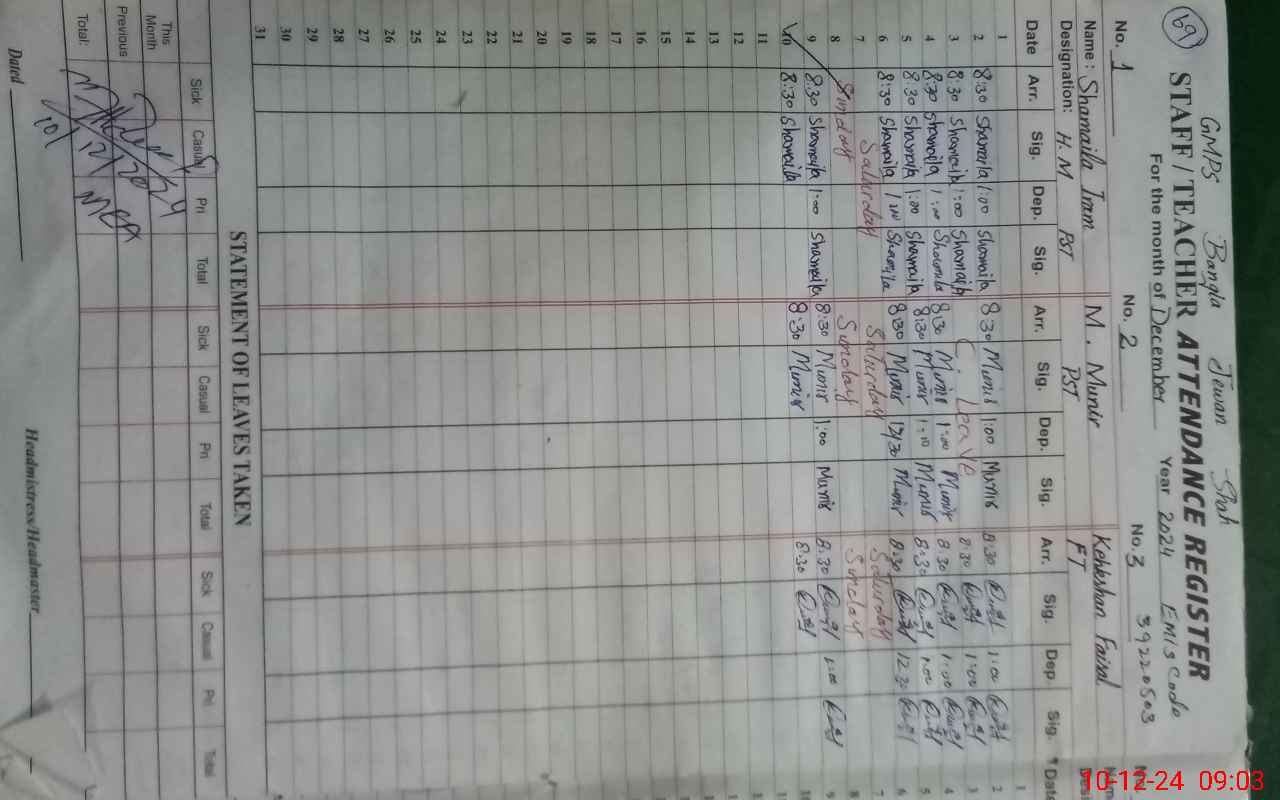 69
GMPS Bangla Jewan Shah
STAFF / TEACHER ATTENDANCE REGISTER
For the month of December Year 2024 EMIS Code
39220503
No. 1 No. 2 No. 3
Name : Shamaila Iram M. Munir Kehkshan Faisal
Designation: H.M PST PST FT
Date Arr. Sig. Dep. Sig. Arr. Sig. Dep. Sig. Arr. Sig. Dep Sig. Date
1 1
2 8:30 Shamaila 1:00 Shamaila 8:30 Munir 1:00 Munir 8:30 1:00 2
3 8:30 Shamaila 1:00 Shamaila C. Leave 8:30 1:00 3
4 8:30 Shamaila 1:00 Shamaila 8:30 Munir 1:00 Munir 8:30 1:00 4
5 8:30 Shamaila 1:00 Shamaila 8:30 Munir 1:00 Munir 8:30 1:00 5
6 8:30 Shamaila 1:00 Shamaila 8:30 Munir 12:30 Munir 8:30 12:30 6
7 Saturday Saturday Saturday 7
8 Sunday Sunday Sunday 8
9 8:30 Shamaila 1:00 Shamaila 8:30 Munir 1:00 Munir 8:30 1:00 9
10 8:30 Shamaila 8:30 Munir 8:30 10
11
12
13
14
15
16
17
18
19
20
21
22
23
24
25
26
27
28
29
30
31
STATEMENT OF LEAVES TAKEN
Sick Casual Pri Total Sick Casual Pri Total Sick Casual Pri Total
This Month
Previous
Total:
MEA
Dated
Headmistress/Headmaster
10-12-24 09:03